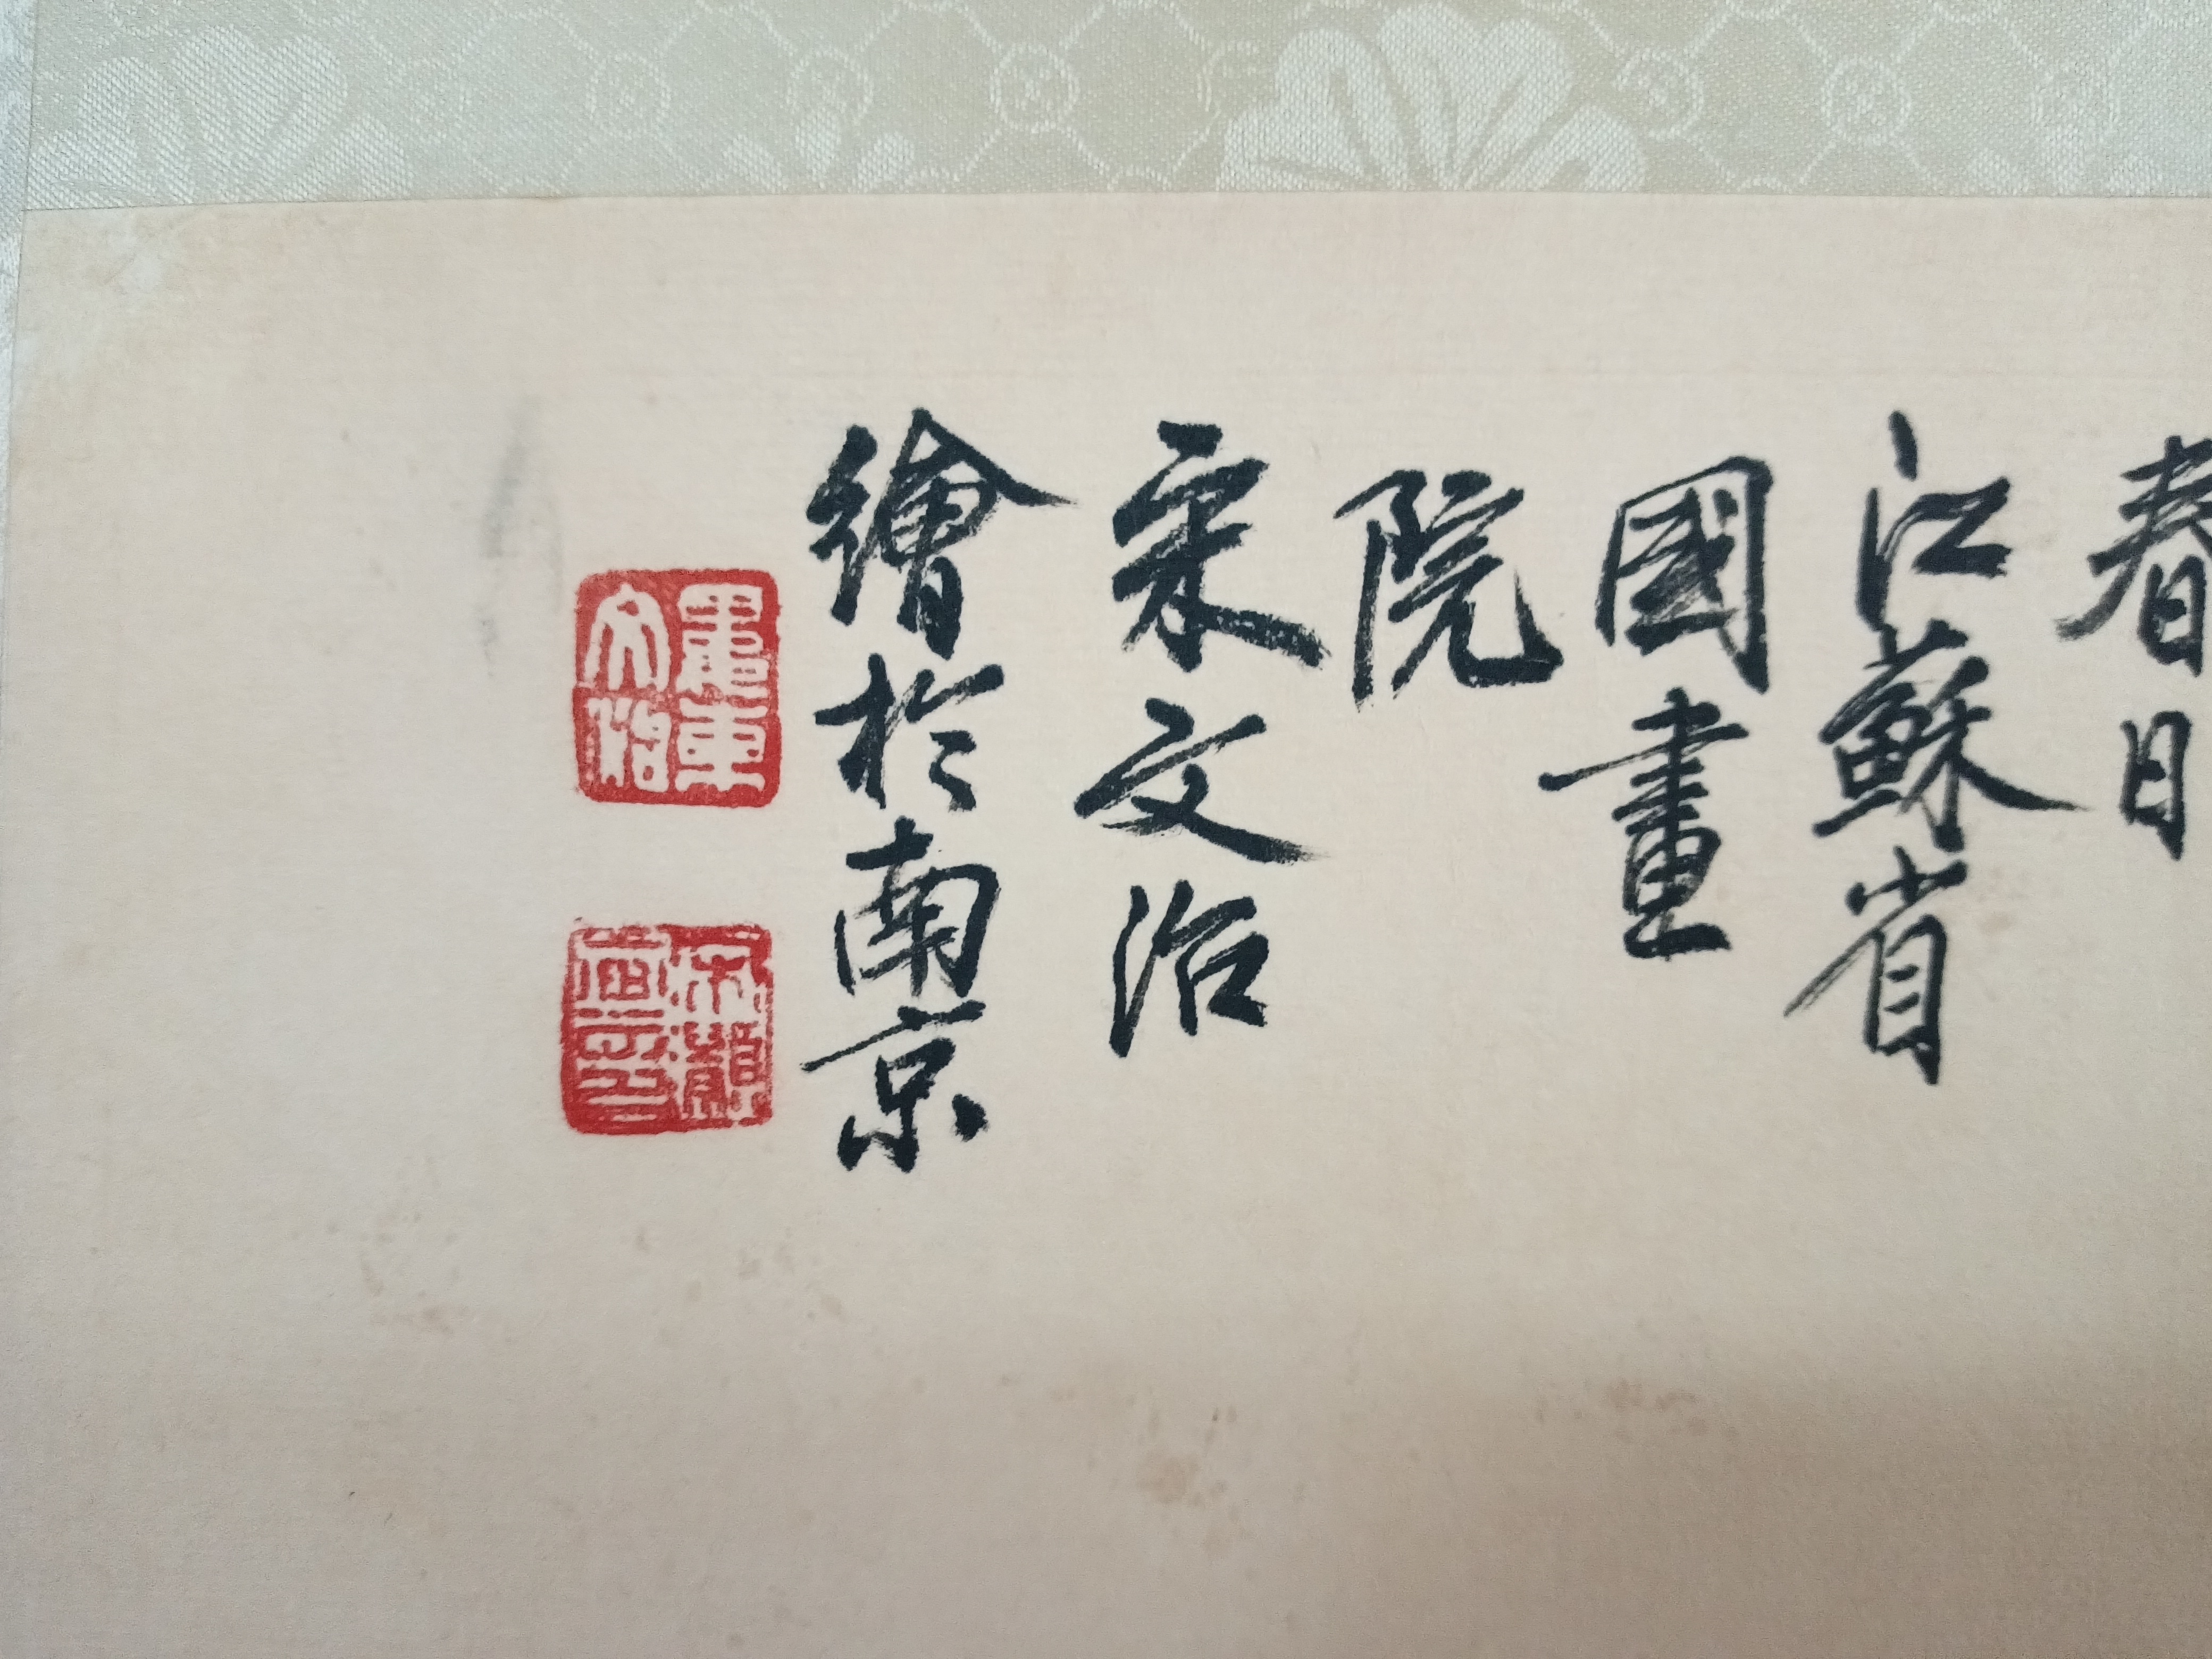 春日
江蘇省
國畫
院
宋文治
繪於南京
婁東
文治